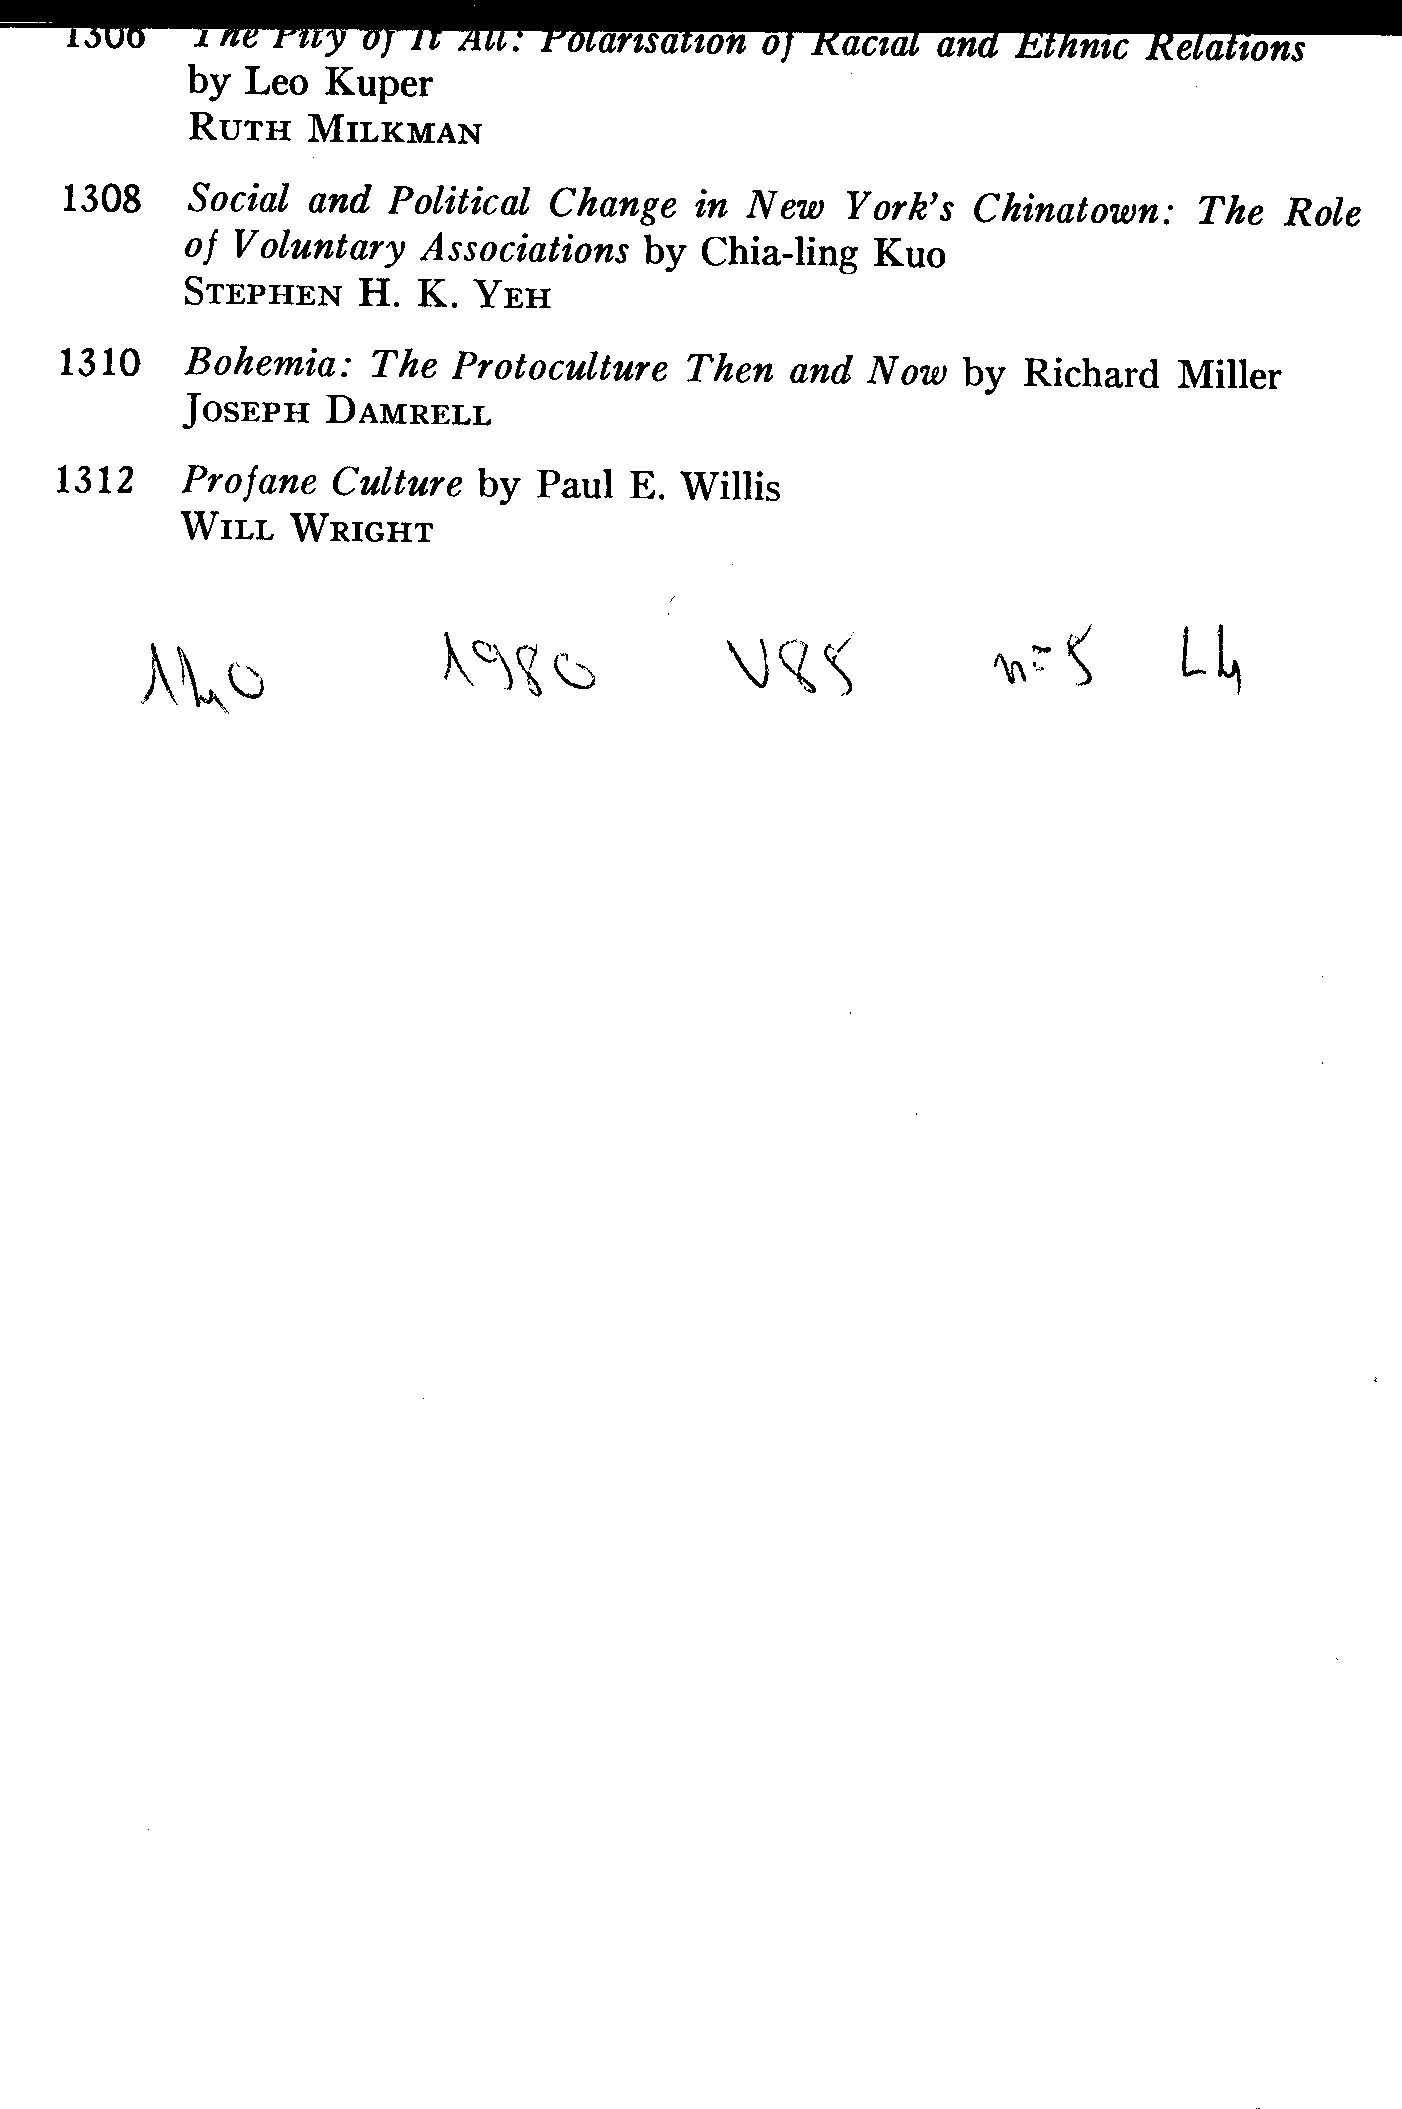 1306 The Pity of It All: Polarisation of Racial and Ethnic Relations
by Leo Kuper
RUTH MILKMAN
1308 Social and Political Change in New York's Chinatown: The Role
of Voluntary Associations by Chia-ling Kuo
STEPHEN H. K. YEH
1310 Bohemia: The Protoculture Then and Now by Richard Miller
JOSEPH DAMRELL
1312 Profane Culture by Paul E. Willis
WILL WRIGHT
140 1980 V85 n=5 L4